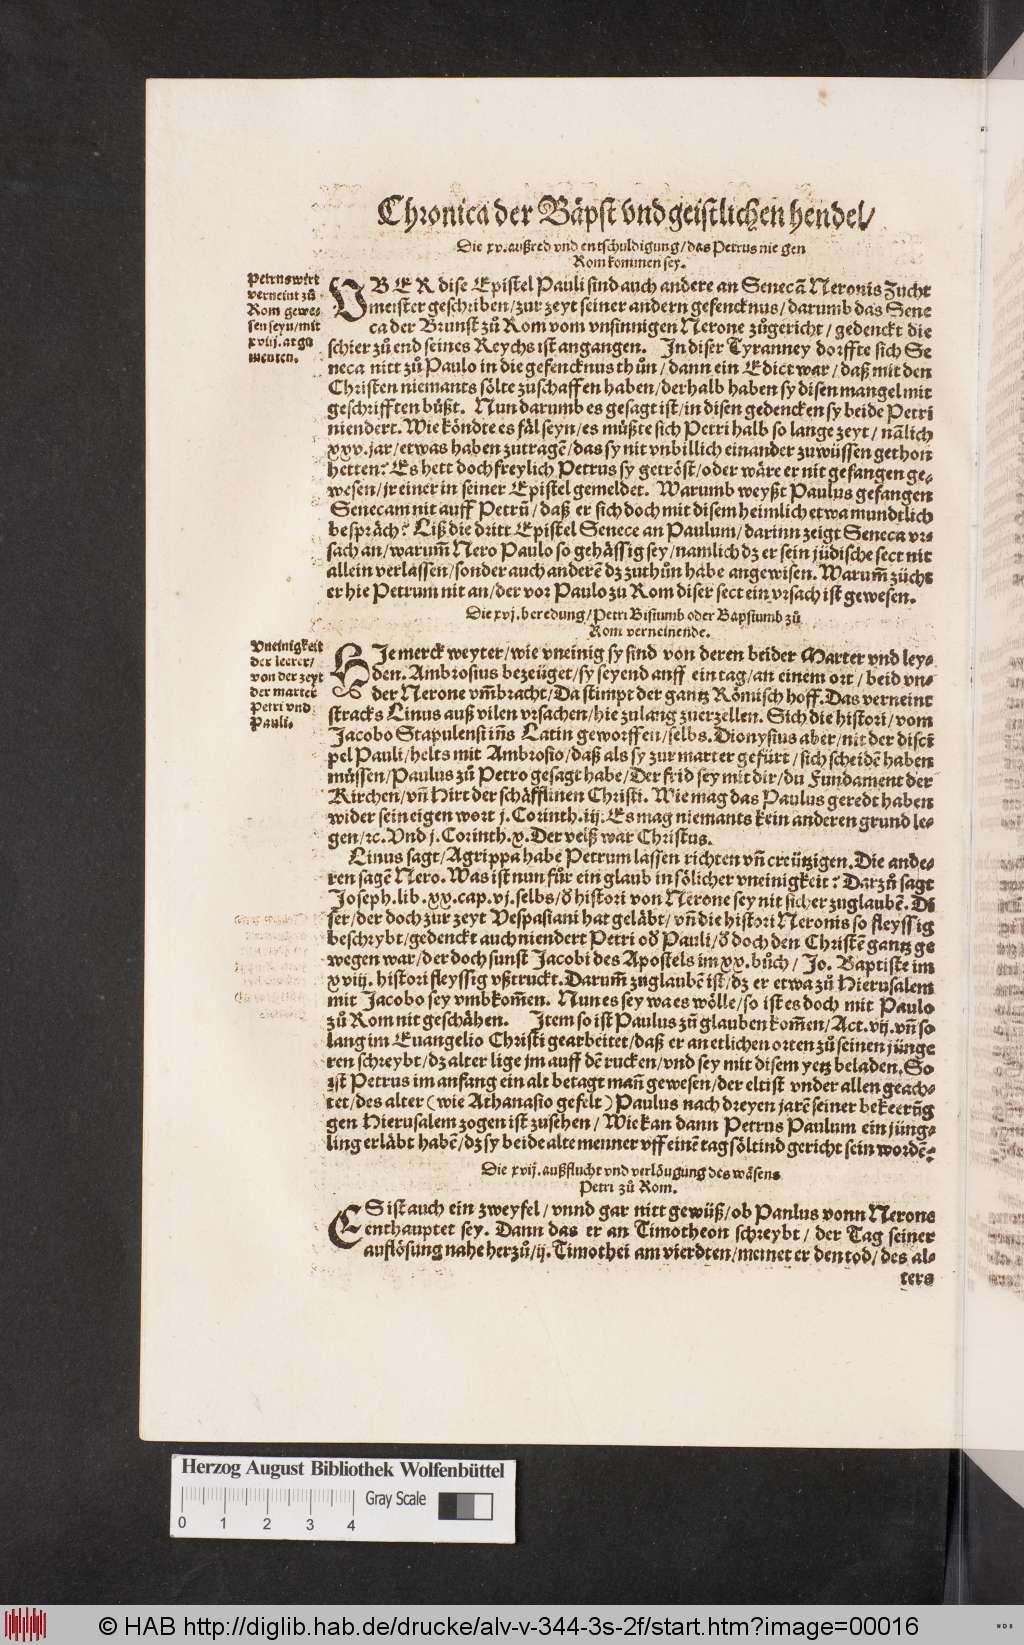 Chronica der Bäpst vnd geistlichen hendel/
Die xv. außred vnd entschuldigung/das Petrus nie gen
Rom kommen sey.
Petrus wirt
verneint zů
Rom gewe-
sen seyn/mit
xviij. argu
menten.
VBER dise Epistel Pauli sind auch andere an Senecã Neronis Zucht
meister geschriben/zur zeyt seiner andern gefencknus/darumb das Sene
ca der Brunst zů Rom vom vnsinnigen Nerone zůgericht/gedenckt die
schier zů end seines Reychs ist angangen. In diser Tyranney dorffte sich Se
neca nitt zů Paulo in die gefencknus thůn/dann ein Edict war/daß mit den
Christen niemants sölte zuschaffen haben/derhalb haben sy disen mangel mit
geschrifften bůßt. Nun darumb es gesagt ist/in disen gedencken sy beide Petri
niendert. Wie köndte es fäl seyn/es müßte sich Petri halb so lange zeyt/nãlich
xxv. jar/etwas haben zutragẽ/das sy nit vnbillich einander zuwüssen gethon
hetten? Es hett doch freylich Petrus sy getröst/oder wäre er nit gefangen ge-
wesen/jr einer in seiner Epistel gemeldet. Warumb weyßt Paulus gefangen
Senecam nit auff Petrũ/daß er sich doch mit disem heimlich etwa mundtlich
bespräch? Liß die dritt Epistel Senece an Paulum/darinn zeigt Seneca vr-
sach an/warum̃ Nero Paulo so gehässig sey/namlich dz er sein jüdische sect nit
allein verlassen/sonder auch anderẽ dz zuthůn habe angewisen. Warum̃ zücht
er hie Petrum nit an/der vor Paulo zu Rom diser sect ein vrsach ist gewesen.
Die xvj. beredung/Petri Bistumb oder Bapstumb zů
Rom verneinende.
Vneinigkeit
der leerer/
von der zeyt
der marter
Petri vnd
Pauli.
HIe merck weyter/wie vneinig sy sind von deren beider Marter vnd ley-
den. Ambrosius bezeüget/sy seyend auff ein tag/an einem ort/beid vn-
der Nerone vm̃bracht/Da stimpt der gantz Römisch hoff. Das verneint
stracks Linus auß vilen vrsachen/hie zulang zuerzellen. Sich die histori/vom
Jacobo Stapulensi iñs Latin geworffen/selbs. Dionysius aber/nit der discĩ
pel Pauli/helts mit Ambrosio/daß als sy zur marter gefürt/sich scheidẽ haben
müssen/Paulus zů Petro gesagt habe/Der frid sey mit dir/du Fundament der
Kirchen/vñ Hirt der schäfflinen Christi. Wie mag das Paulus geredt haben
wider sein eigen wort j. Corinth. iij. Es mag niemants kein anderen grund le-
gen/ꝛc. Vnd j. Corinth. x. Der velß war Christus.
Linus sagt/Agrippa habe Petrum lassen richten vñ creützigen. Die ande-
ren sagẽ Nero. Was ist nun für ein glaub in sölicher vneinigkeit? Darzů sagt
Joseph. lib. xx. cap. vj. selbs/d' histori von Nerone sey nit sicher zuglaubẽ. Di
ser/der doch zur zeyt Vespasiani hat geläbt/vñ die histori Neronis so fleyssig
beschrybt/gedenckt auch niendert Petri od' Pauli/d' doch den Christẽ gantz ge
wegen war/der doch sunst Jacobi des Apostels im xx. bůch/Jo. Baptiste im
xviij. histori fleyssig vßtruckt. Darum̃ zuglaubẽ ist/dz er etwa zů Hierusalem
mit Jacobo sey vmbkom̃en. Nun es sey wa es wölle/so ist es doch mit Paulo
zů Rom nit geschähen. Item so ist Paulus zů glauben kom̃en/Act. vij. vñ so
lang im Euangelio Christi gearbeitet/daß er an etlichen orten zů seinen jünge
ren schreybt/dz alter lige jm auff dẽ rucken/vnd sey mit disem yetz beladen. So
ist Petrus im anfang ein alt betagt man̄ gewesen/der eltist vnder allen geach-
tet/des alter (wie Athanasio gefelt) Paulus nach dreyen jarẽ seiner bekeerũg
gen Hierusalem zogen ist zusehen/Wie kan dann Petrus Paulum ein jüng-
ling erläbt habẽ/dz sy beide alte menner vff einẽ tag söltind gericht sein wordẽ-
Die xvij. außflucht vnd verlöugung des wäsens
Petri zů Rom.
ES ist auch ein zweyfel/vnnd gar nitt gewüß/ob Paulus vonn Nerone
enthauptet sey. Dann das er an Timotheon schreybt/der Tag seiner
auflösung nahe herzů/ij. Timothei am vierdten/meinet er den tod/des al-
ters
Herzog August Bibliothek Wolfenbüttel
Gray Scale
0 1 2 3 4
© HAB http://diglib.hab.de/drucke/alv-v-344-3s-2f/start.htm?image=00016